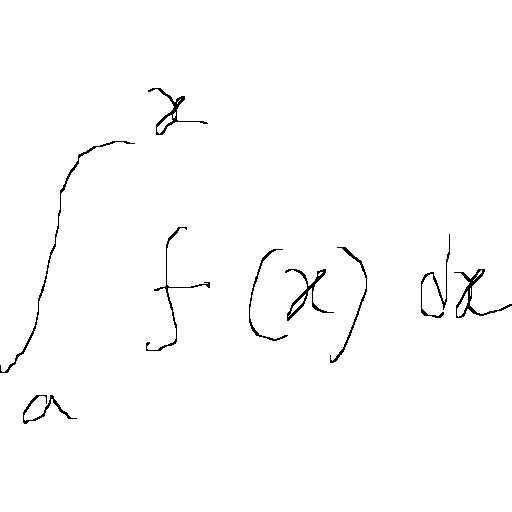 ∫ₐˣ f(x) dx